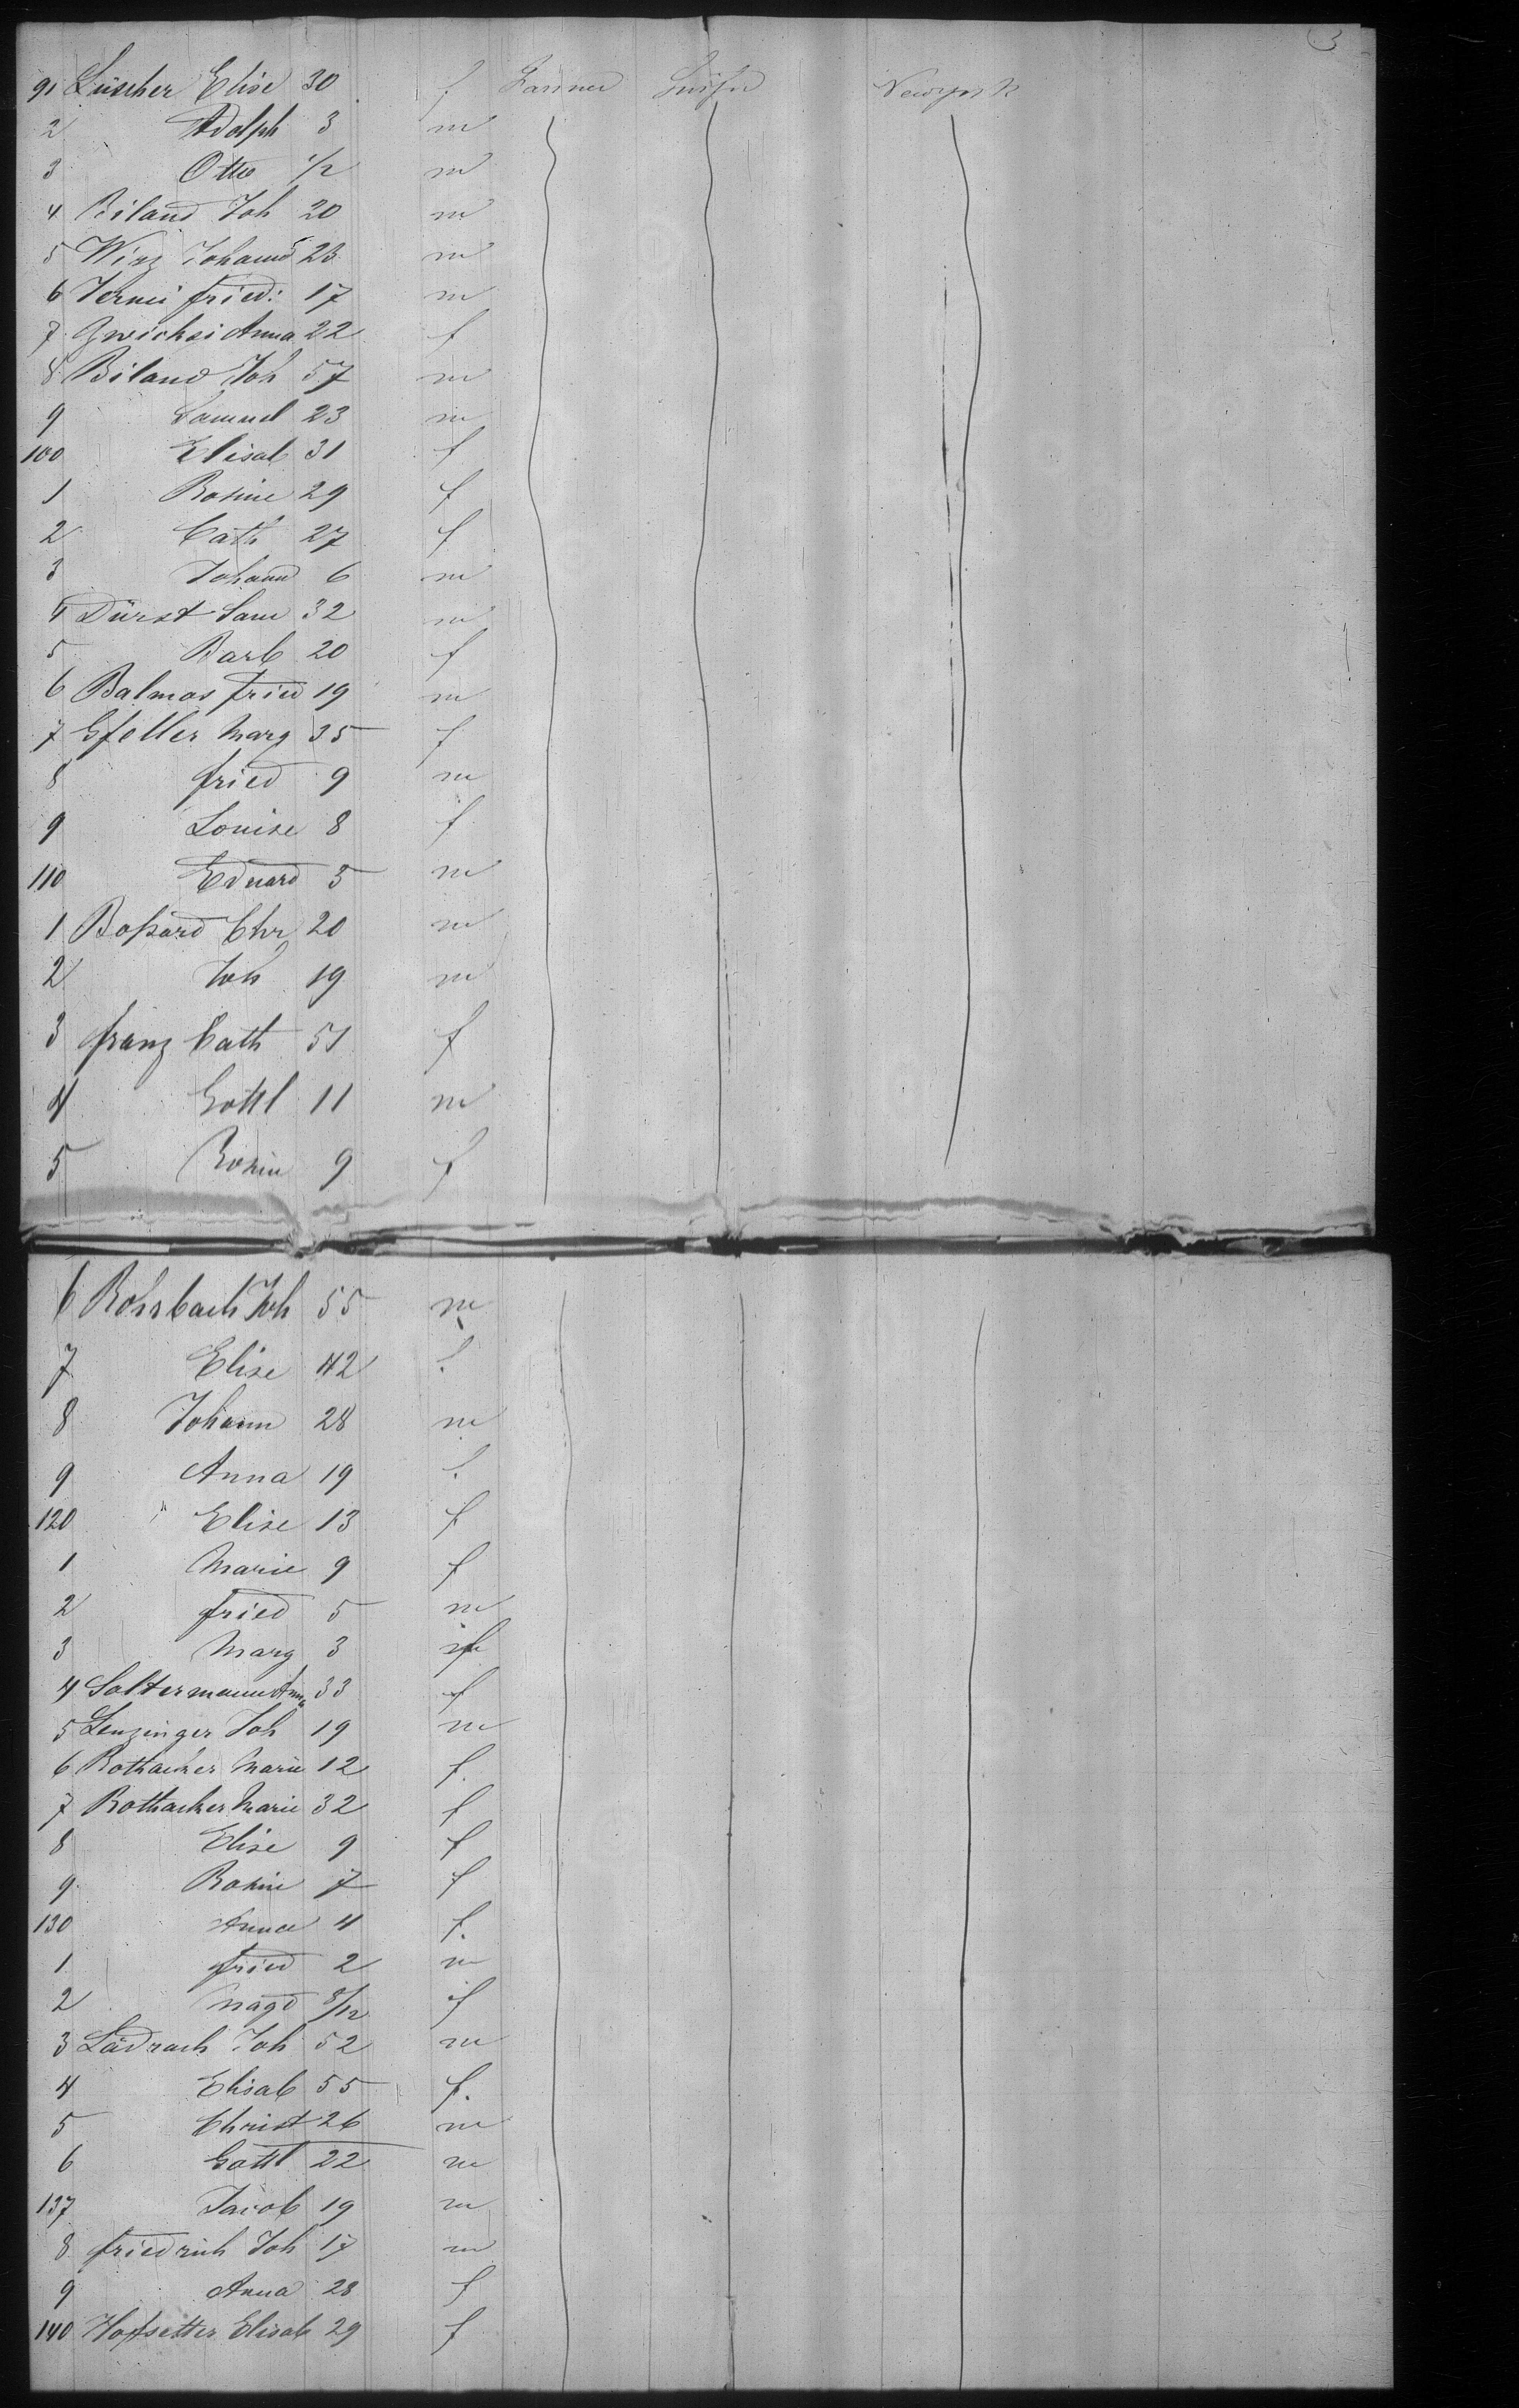 3
91 Lüscher Elise 30 f Farmer Suisse Newyork
2 Adolph 3 m
3 Otto 1/2 m
4 Biland Joh 20 m
5 Winz Johann 23 m
6 fried: 17 m
7 Anna 22 f
8 Biland Joh 57 m
9 Samuel 23 m
100 Elisab 31 f
1 Rosine 29 f
2 Cath 27 f
3 Johann 6 m
4 Dürst Sam 32 m
5 Barb 20 f
6 Balmas fried 19 m
7 Gfeller Marg 35 f
8 fried 9 m
9 Louise 8 f
110 Eduard 5 m
1 Boßard Chr 20 m
2 Joh 19 m
3 franz Cath 51 f
4 Gottl 11 m
5 Rosin 9 f
6 Rohrbach Joh 55 m
7 Elise 42 f
8 Johann 28 m
9 Anna 19 f.
120 " Elise 13 f
1 Marie 9 f
2 fried 5 m
3 Marg 3 f
4 Saltermann Anna 33 f
5 Lenzinger Joh 19 m
6 Rothacher Marie 12 f.
7 Rothacker Marie 32 f
8 Elise 9 f
9 Rosine 7 f
130 Anna 4 f.
1 fried 2 m
2 Magd 8/12 f
3 Lädrach Joh 52 m
4 Elisab 55 f.
5 Christ 26 m
6 Gottl 22 m
137 Jacob 19 m
8 friedrich Joh 17 m
9 Anna 28 f
140 Hofsetter Elisab 29 f